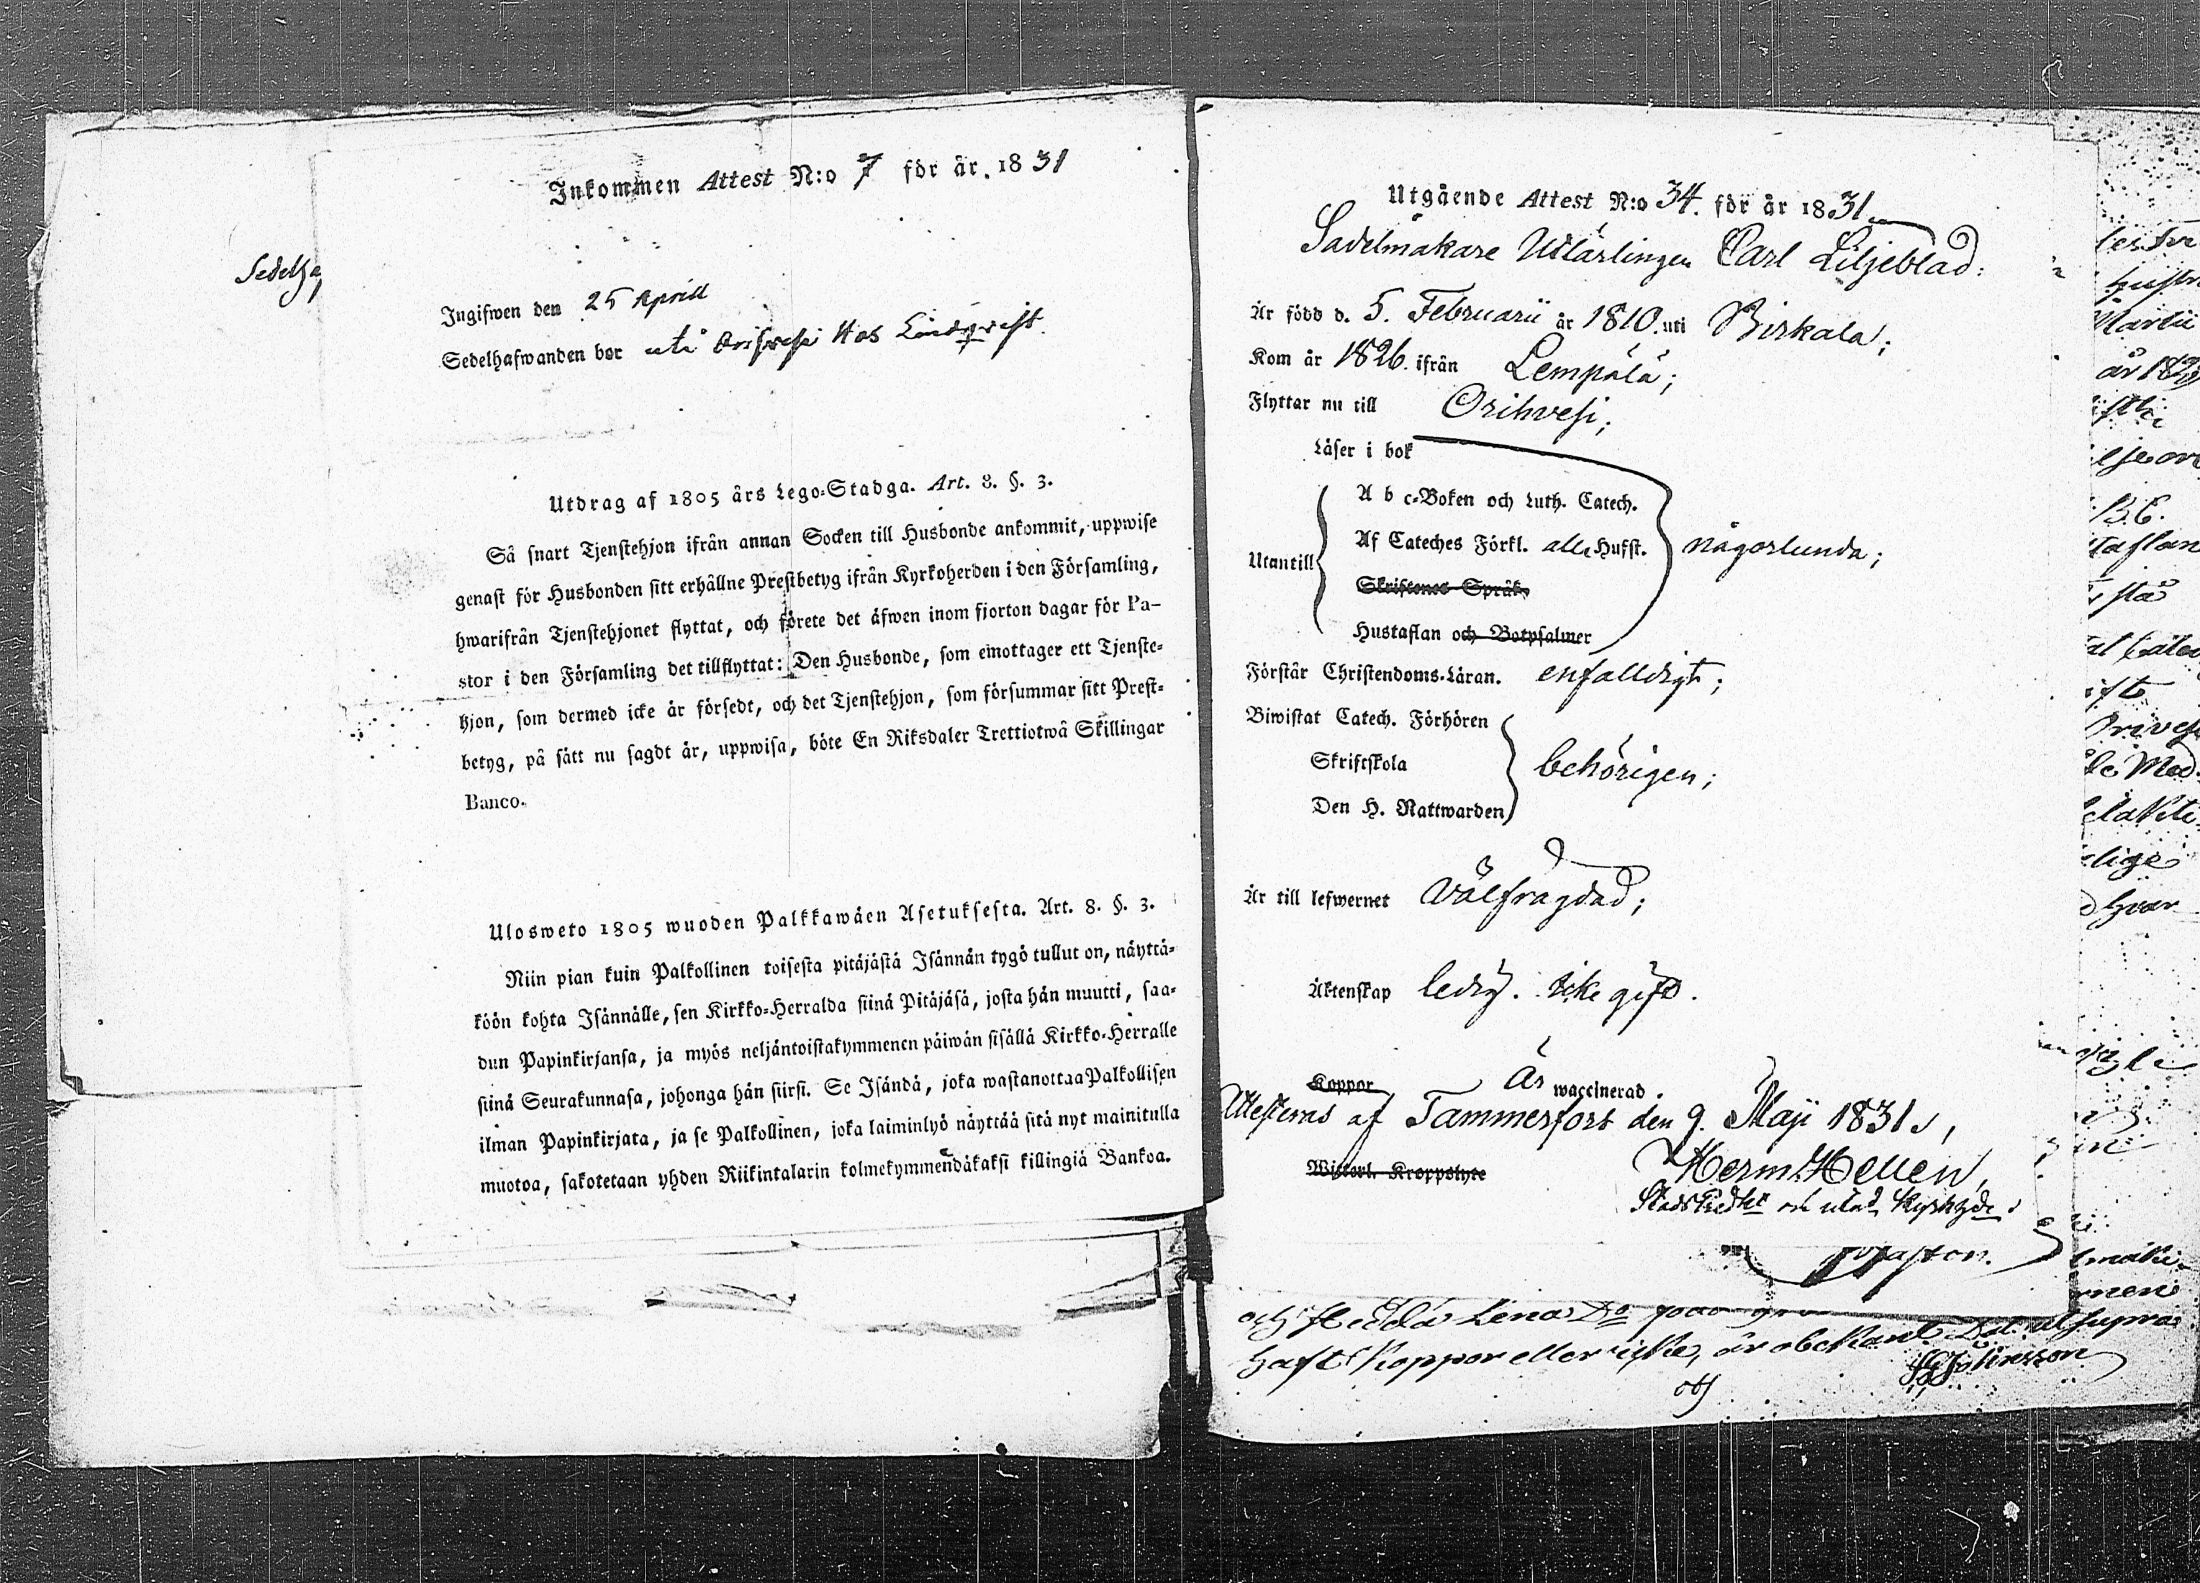 Inkommen Attest N:o 7 för år 1831
Sedelha
Ingifwen den 25 Aprill
Sedelhafwanden bor uti Orihvesi Hos Lindqvist.
Utdrag af 1805 års Lego-Stadga. Art. 8. §. 3.
Så snart Tjenstehjon ifrån annan Socken till Husbonde ankommit, uppwise
genast för Husbonden sitt erhållne Prestbetyg ifrån Kyrkoherden i den Församling,
hwarifrån Tjenstehjonet flyttat, och förete det äfwen inom fjorton dagar för Pa-
stor i den Församling det tillflyttat: Den Husbonde, som emottager ett Tjenste-
hjon, som dermed icke är försedt, och det Tjenstehjon, som försummar sitt Prest-
betyg, på sätt nu sagdt är, uppwisa, böte En Riksdaler Trettiotwå Skillingar
Banco.
Ulosweto 1805 wuoden Palkkawäen Asetuksesta. Art. 8. §. 3.
Niin pian kuin Palkollinen toisesta pitäjästä Isännän tygö tullut on, näyttä-
köön kohta Isännälle, sen Kirkko-Herralda siinä Pitäjäsä, josta hän muutti, saa-
dun Papinkirjansa, ja myös neljäntoistakymmenen päiwän sisällä Kirkko-Herralle
siinä Seurakunnasa, johonga hän siirsi. Se Isändä, joka wastanottaa Palkollisen
ilman Papinkirjata, ja se Palkollinen, joka laiminlyö näyttää sitä nyt mainitulla
muotoa, sakotetaan yhden Riikintalarin kolmekymmendäkaksi killingiä Bankoa.
Utgående Attest N:o 34. för år 1831
Sadelmakare Utlärlingen Carl Liljeblad:
År född d. 5. Februarii år 1810. uti Birkala;
Kom år 1826. ifrån Lempälä;
Flyttar nu till Orihvesi;
Läser i bok
A b c-Boken och Luth. Catech.
Utantill Af Cateches Förkl. alla Hufst. någorlunda;
Skriftenes Språk
Hustaflan och Botpsalmer
Förstår Christendoms-Läran. enfalldigt;
Biwistat Catech. Förhören
Skriftskola behörigen;
Den H. Nattwarden
År till lefwernet välfrägdad;
Äktenskap ledig. icke gift.
Koppor Är waccinerad.
Attesteras af Tammerfors den 9. Maji 1831.,
Wisterl. Kroppslyte Herm. Hellen,
och Hedda Lena
haft Koppor eller icke, är obekant Dat. ut supra